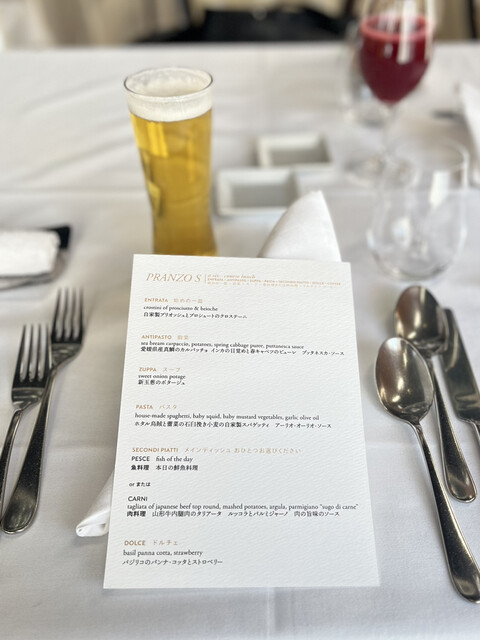 PRANZO S
a six - course lunch
ENTRATA 始めの一皿
crostini of prosciutto & brioche
自家製ブリオッシュとプロシュートのクロスティーニ
ANTIPASTO 前菜
sea bream carpaccio, potatoes, spring cabbage purée, puttanesca sauce
愛媛県産真鯛のカルパッチョ インカの目覚めと春キャベツのピューレ プッタネスカ・ソース
ZUPPA スープ
sweet onion potage
新玉葱のポタージュ
PASTA パスタ
house-made spaghetti, baby squid, baby mustard vegetables, garlic olive oil
ホタル烏賊と蕾菜の石臼挽き小麦の自家製スパゲッティ アーリオ・オーリオ・ソース
SECONDI PIATTI メインディッシュ おひとつお選びください
PESCE fish of the day
魚料理 本日の鮮魚料理
or または
CARNI
tagliata of japanese beef top round, mashed potatoes, argula, parmigiano "sugo di carne"
肉料理 山形牛内腿肉のタリアータ ルッコラとパルミジャーノ 肉の旨味のソース
DOLCE ドルチェ
basil panna cotta, strawberry
バジリコのパンナ・コッタとストロベリー